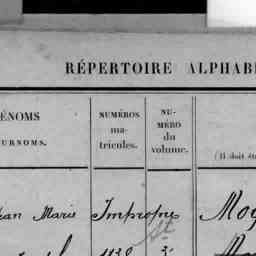 RÉPERTOIRE ALPHAB
ÉNOMS
URNOMS.
NUMÉROS
ma-
tricules.
NU-
MÉRO
du
volume.
(Il doit êt
Jean Marie Impropre